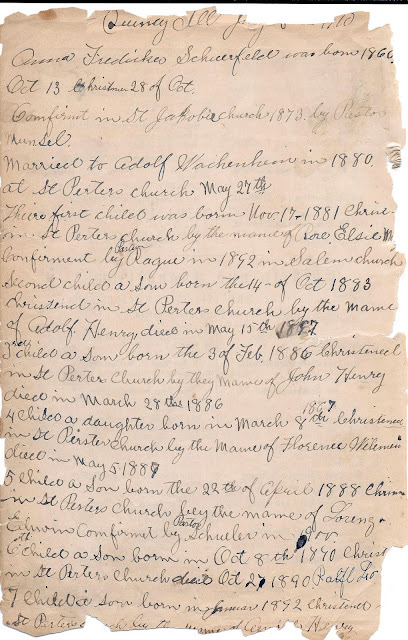 Quincy Ill
Anna Fredicke Scheerfeld was born 1860
Oct 13 Christmen 28 of Oct.
Comfirmt in St Jakobie church 1873. by Pastor
Munsel.
Married to Adolf Wachenheim in 1880.
at St Perters church May 27th
Theire first child was born Nov. 17 - 1881 Christ-
in St Perters church by the name of Core. Elsie M
Confirment by Pastor Rague in 1892 in Salem church
second child a Son born the 14 - of Oct 1883
christend in St Perters church by the Mame
of Adolf. Henry, died in May 15th 1887
3 child a Son born the 3 of Feb. 1886 Christened
in St Perter Church by they Mame of John Henry
died in March 28th 1886
4 Child a daughter born in March 8th 1887 Christened
in St Perster church by the Mame of Florence
died in May 5 1887
5 Child a Son born the 22th of April 1888 Chris
in St Persters church bey the mame of Lorenz
Edwin Comfirmt by Pastor Schueler in
6th Child a Son born in Oct 8th 1890 Christ
in St Perters Church died Oct 27 1890 Ralf Leo
7 Child a Son born in Januar 1892 Christened
St Perters church by the mame of Henry